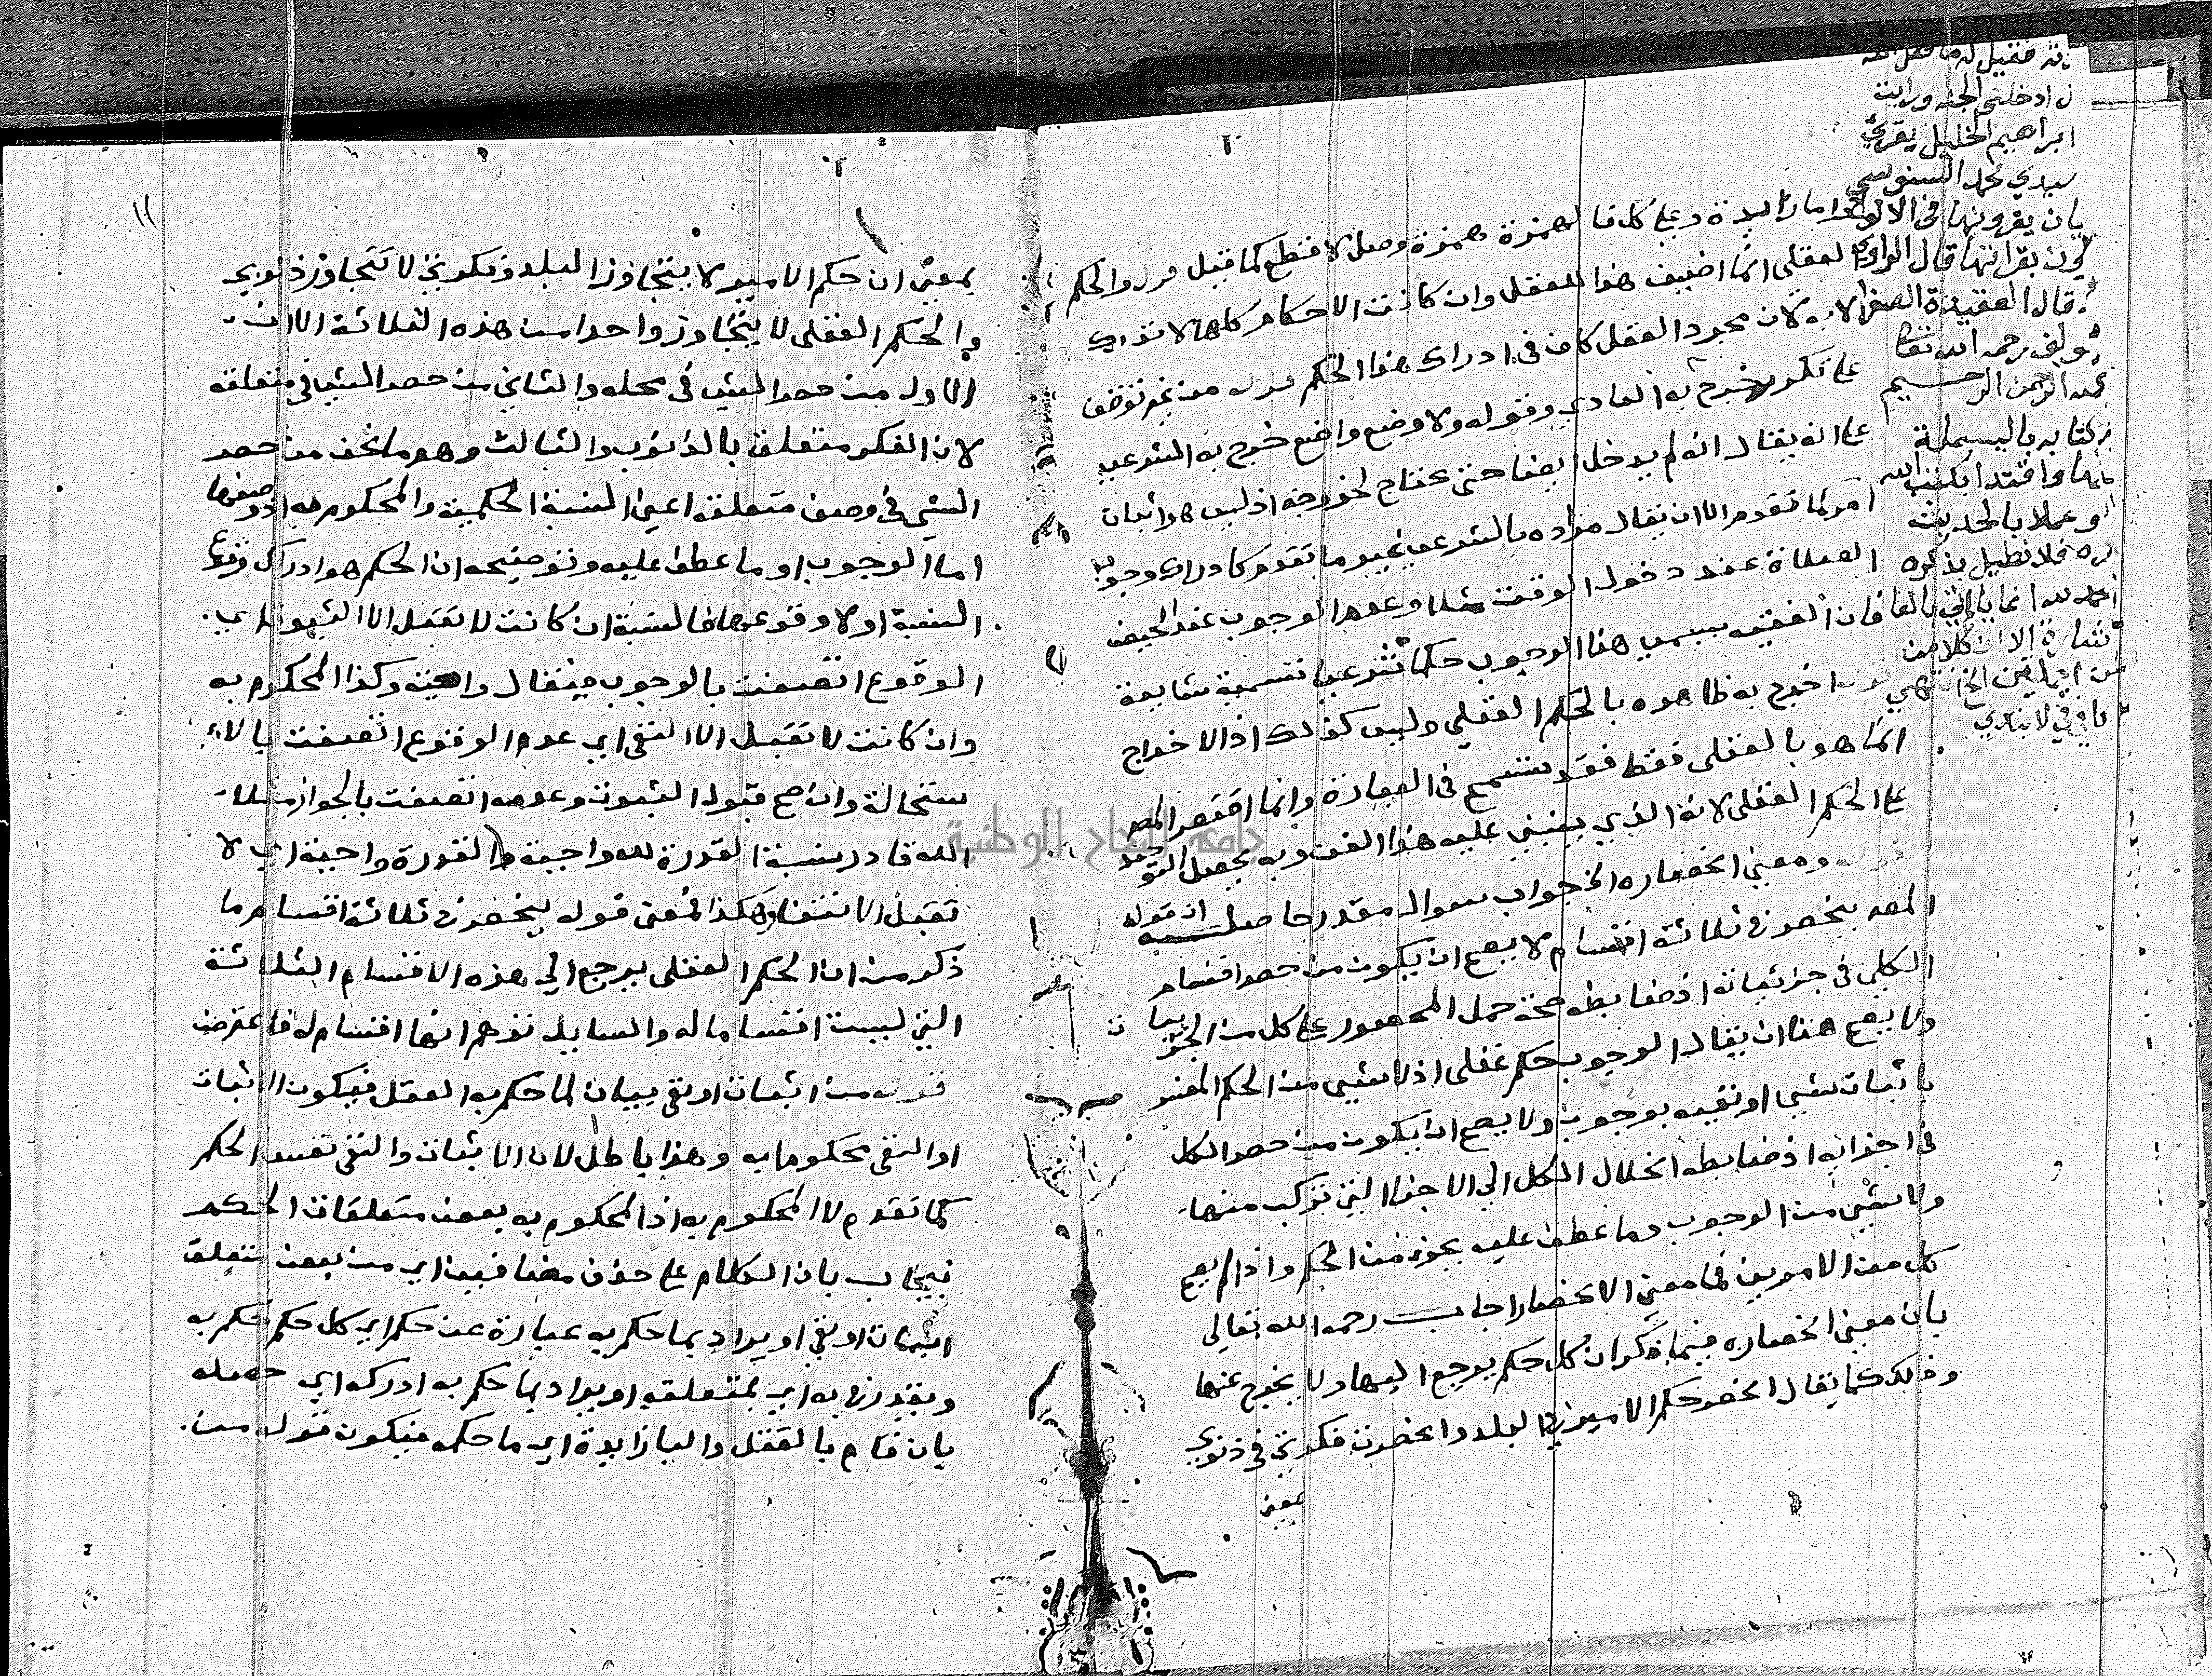 ل ادخلني الجنة ورايت
ابراهيم الخليل يقرئ
سيدي محمد السنوسي
بان يقرونها في الالواح
بقرائتها قال الراوي
قال العقيدة الصغرا
رحمه الله تعالى
الرحمن الرحيم
كتابه بالبسملة
وعملا بالحديث
فلا نطيل بذكره
زايدة وعلى كل فالهمزة همزة وصل لا قطع كما قيل قوله والحكم
العقلي انما اضيف هذا للعقل وان كانت الاحكام كلها لا تدرك
الا به لان مجرد العقل كاف في ادراك هذا الحكم قوله من غير توقف
على تكرر خرج به العادي وقوله ولا وضع واضع خرج به الشرعي
على انه يقال انه لم يدخل ايضا حتى يحتاج لخروجه اذ ليس هو اثبات
امر كما تقدم الا ان يقال مراده بالشرعي غير ما تقدم كادراك وجوب
الصلاة عند دخول الوقت مثلا وعدم الوجوب عند الحيض
فان الفقيه يسمي هذا الوجوب حكما شرعيا تسمية شايعة
اخرج به ظاهره بالحكم العقلي وليس كذلك اذ الاخراج
انما هو بالعقلي فقط فقد تسمح في العبارة وانما اقتصر المص
على الحكم العقلي لانه الذي ينبني عليه هذا الفن وبه يحصل التوحيد
قوله ومعنى انحصاره الخ جواب سوال مقدر حاصله ان قوله
المص ينحصر في ثلاثة اقسام لا يصح ان يكون من حصر اقسام
الكلي في جزئياته اذ ضابطه صحة حمل المحصور على كل من الجزئيات
ولا يصح هنا ان يقال الوجوب حكم عقلي اذ لا شيء من الحكم المفسر
باثبات شيء او نفيه بوجوب ولا يصح ان يكون من حصر الكل
في اجزائه اذ ضابطه انحلال الكل الى الاجزا التي تركب منها
ولا شيء من الوجوب وما عطف عليه بجزء من الحكم واذا لم يصح
كل من الامرين فما معنى الانحصار اجاب رحمه الله تعالى
بان معنى انحصاره فيما ذكر ان كل حكم يرجع اليها ولا يخرج عنها
وذلك كما يقال انحصر حكم الامير في البلد وانحصرت فكرتي في ذنوبي
بمعنى
١١
بمعنى ان حكم الامير لا يتجاوز البلد وفكرتي لا تتجاوز ذنوبي
والحكم العقلي لا يتجاوز واحدا من هذه الثلاثة الا ان
الاول من حصر الشيء في محله والثاني من حصر الشيء في متعلقه
لان الفكر متعلق بالذنوب والثالث وهو ما نحن من حصر
الشيء في وصف متعلقه اعني النسبة الحكمية والمحكوم به اذ وصفها
اما الوجوب او ما عطف عليه وتوضيحه ان الحكم هو ادراك وقوع
النسبة او لا وقوعها فالنسبة ان كانت لا تقبل الا الثبوت اي
الوقوع اتصفت بالوجوب فيقال واجبة وكذا المحكوم به
وان كانت لا تقبل الا النفي اي عدم الوقوع اتصفت بالا
ستحالة وان صح قبول الثبوت وعدمه اتصفت بالجواز مثلا
الله قادر نسبة القدرة لله واجبة والقدرة واجبة اي لا
تقبل الانتفا وهكذا فمعنى قوله ينحصر في ثلاثة اقسام ما
ذكر من ان الحكم العقلي يرجع الى هذه الاقسام الثلاثة
التي ليست اقساما له والسايل توهم انها اقسام له فاعترض
قوله من اثبات او نفي بيان لما حكم به العقل فيكون الاثبات
او النفي محكوما به وهذا باطل لان الاثبات والنفي نفس الحكم
كما تقدم لا المحكوم به اذ المحكوم به بعض متعلقات الحكم
فيجاب بان الكلام على حذف مضافين اي من بعض متعلق
اثبات او نفي او يراد بما حكم به عبارة عن حكم اي كل حكم حكم به
ويقدر في به اي بمتعلقه او يراد بما حكم به ادركه اي حصله
بان قام بالعقل والبا زايدة اي ما حكمه فيكون قوله من
جامعة النجاح الوطنية